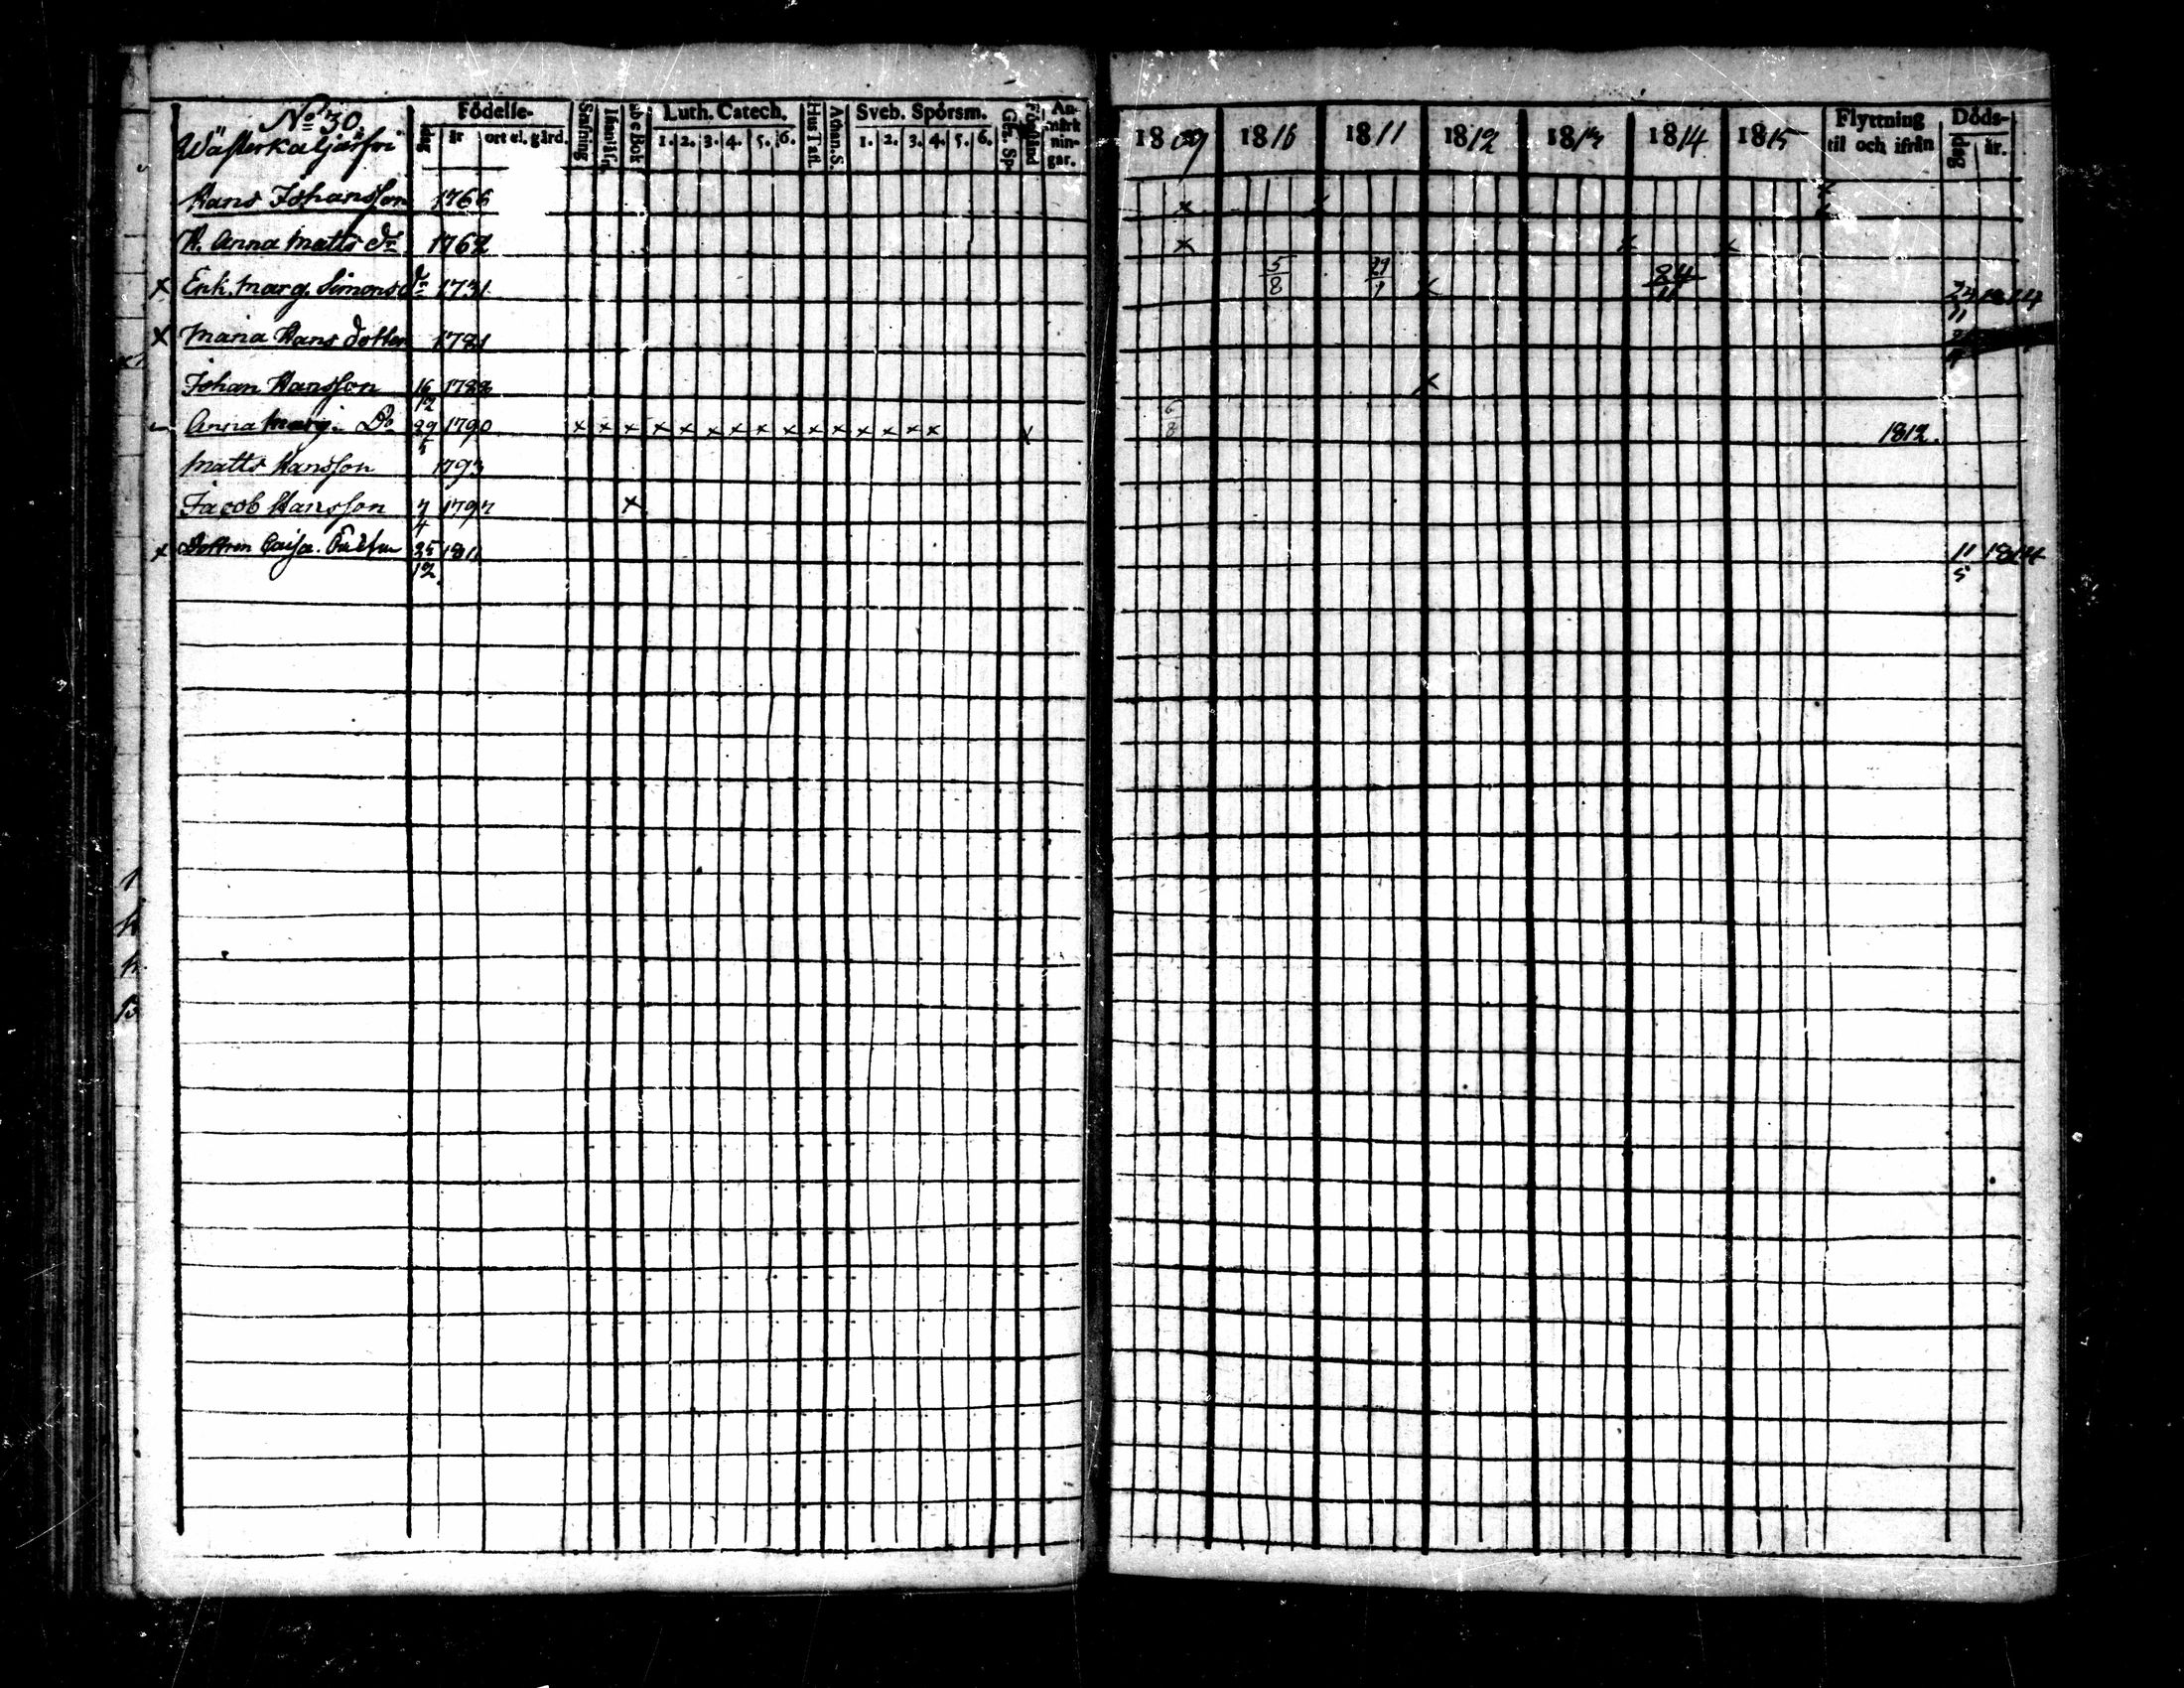 No 30
Wästerkaljärfvi
Födelse-
dag år ort el. gård.
Stafning
abc Bok
Luth. Catech.
1. 2. 3. 4. 5. 6.
Hus Tafl.
Athan. S.
Sveb. Spörsm.
1. 2. 3. 4. 5. 6.
Gez. Sp.
Förstånd
An-
märk
nin-
gar.
1809 1810 1811 1812 1813 1814 1815
Flyttning
til och ifrån
Döds-
dag år.
Hans Johansson 1766 x
H. Anna Matts dr 1762 x x x
x Enk. Marg. Simons dr 1731 5/8 29/1 x 24/11 24/11 1814
x Maria Hans dotter 1781
Johan Hansson 16/12 1788 x
Anna Marg. Do 29/5 1790 x x x x x x x x x x x x x x x x 6/8 1812.
Matts Hansson 1793
Jacob Hansson 7/4 1797 x
x Dottren Caisa 25/12 1811 11/5 1814